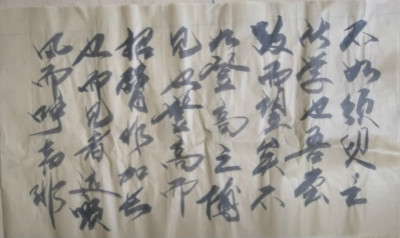 不如须臾之
所学也吾尝
跂而望矣不
如登高之博
见也登高而
招臂非加长
也而见者远顺
风而呼声非